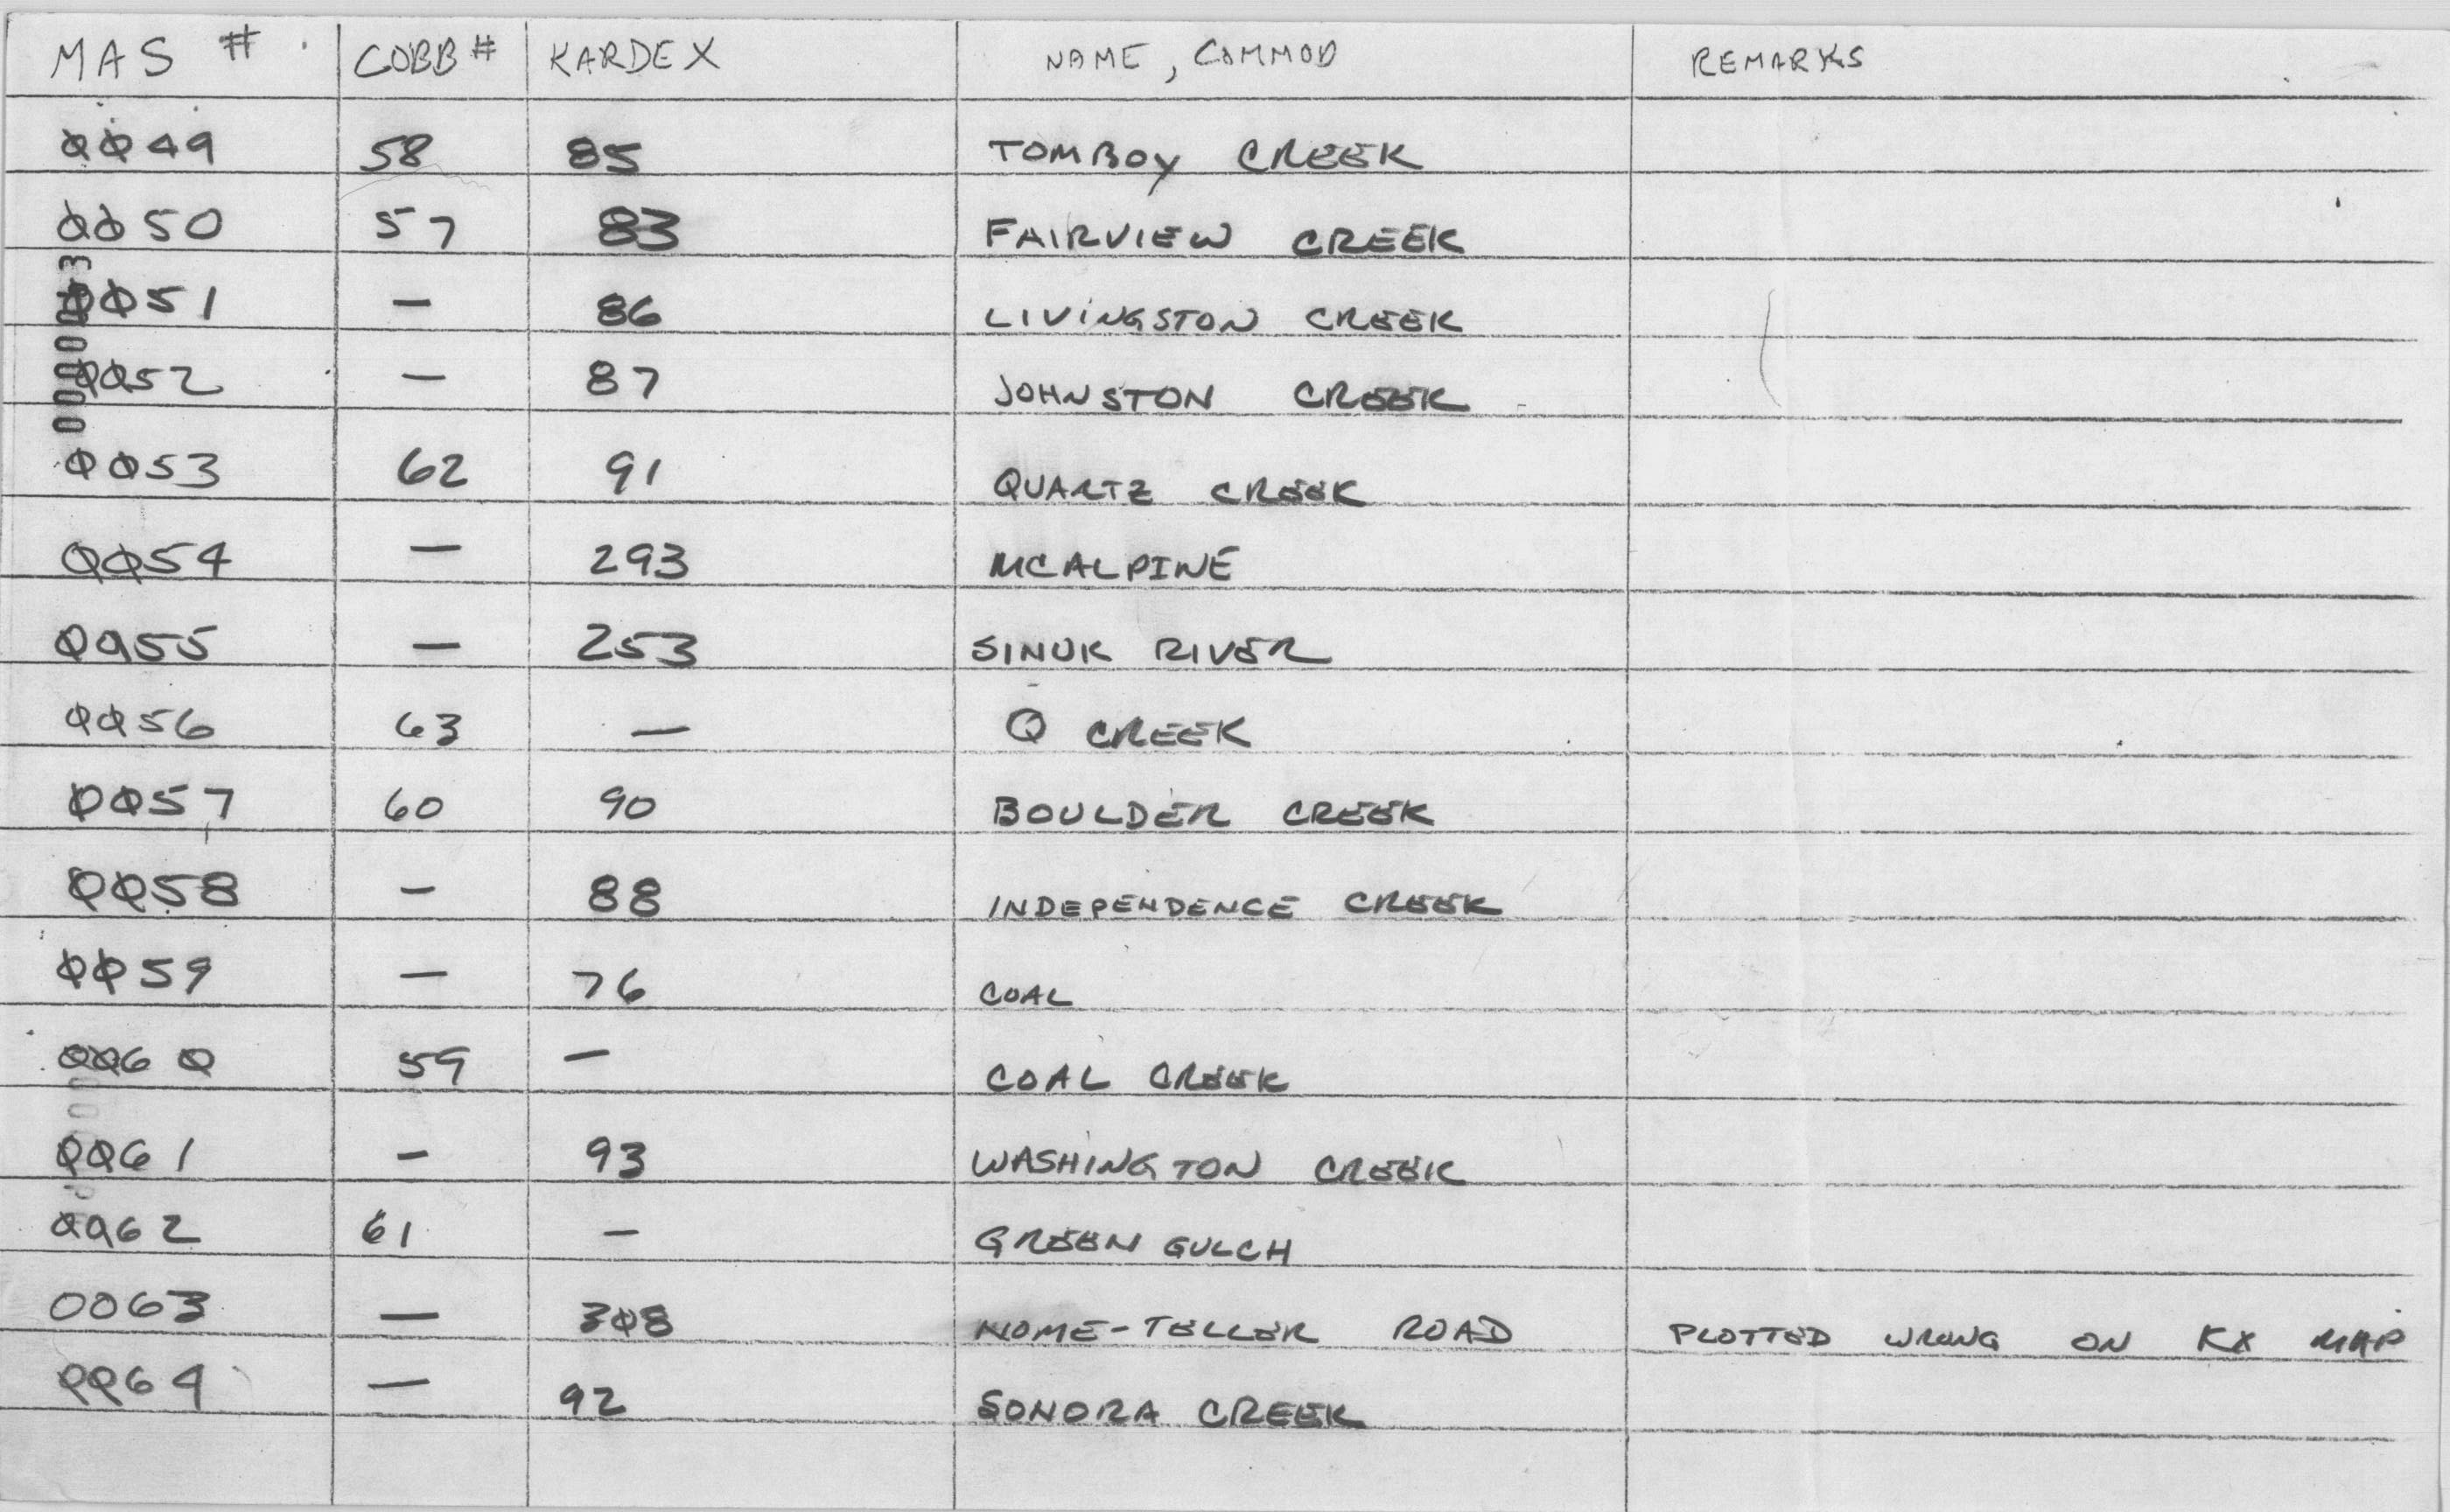 MAS # COBB # KARDEX NAME, COMMOD REMARKS
0049 58 85 TOMBOY CREEK
0050 57 83 FAIRVIEW CREEK
0051 — 86 LIVINGSTON CREEK
0052 — 87 JOHNSTON CREEK
0053 62 91 QUARTZ CREEK
0054 — 293 MCALPINE
0055 — 253 SINUK RIVER
0056 63 — Q CREEK
0057 60 90 BOULDER CREEK
0058 — 88 INDEPENDENCE CREEK
0059 — 76 COAL
0060 59 — COAL CREEK
0061 — 93 WASHINGTON CREEK
0062 61 — GREEN GULCH
0063 — 308 NOME-TELLER ROAD PLOTTED WRONG ON KX MAP
0064 — 92 SONORA CREEK